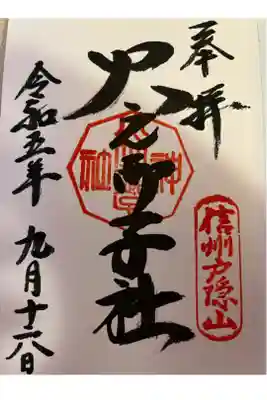 奉拝
信州戸隠山
火之御子社
令和五年 九月十六日